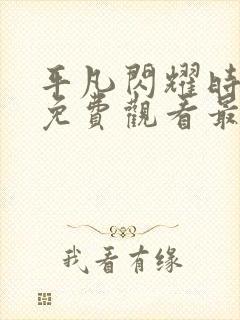 平凡閃耀時
免費觀看最
我看有缘